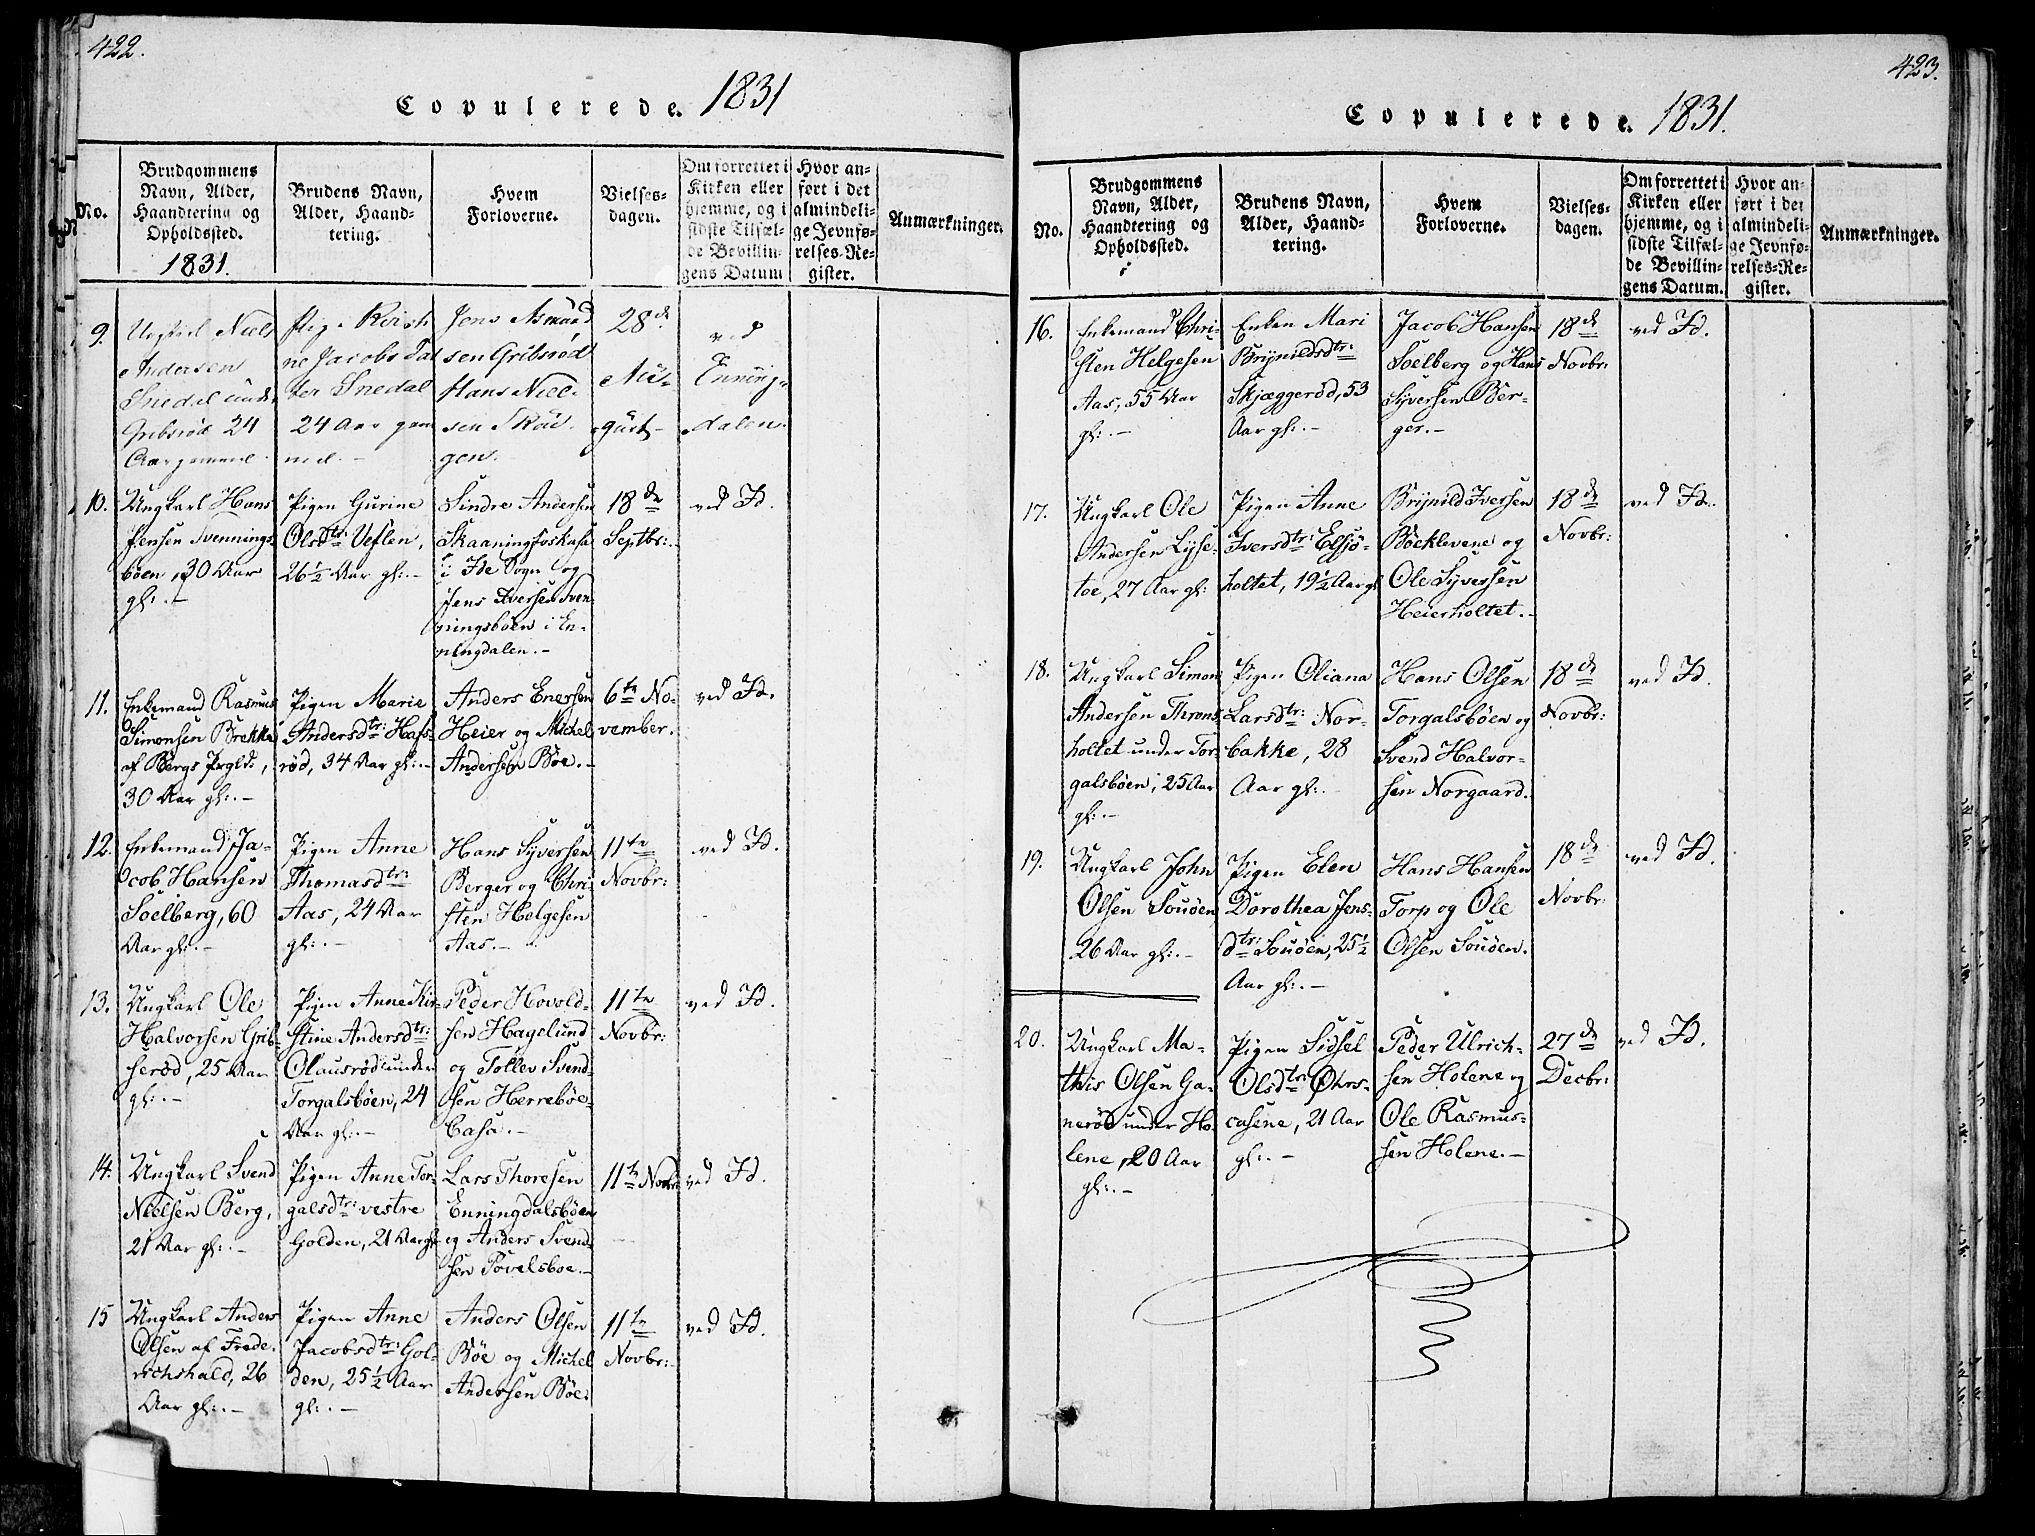 422.
Copulerede. 1831
No.
Brudgommens
Navn, Alder,
Haandtering og
Opholdssted.
1831.
Brudens Navn,
Alder, Haand-
tering.
Hvem
Forloverne.
Vielses-
dagen.
Om forrettet i
Kirken eller
hjemme, og i
sidste Tilfæl-
de Bevillin-
gens Datum
Hvor an-
ført i det
almindeli-
ge Jevnfø-
relses-Re-
gister.
Anmærkninger.
9.
Ungkarl Niels
Andersen
Snedal under
Gribsrød 24
Aar gammel.
Pige
ne Jacobs Dat
ter Snedal
24 Aar gam
mel.-
Jens Asmünd
sen Gribsrød
Hans Niel-
sen Skou-
gen.
28de
Au-
gust-
ved
Enning-
dalen.
10.
Ungkarl Hans
Jensen Svennings-
böen, 30 Aar
gl:.-
Pigen Gurine
Olsdtr: Veflen,
26½ Aar gl:.-
Sindre Andersen
Skaaningfoskasa
i Ide Sogn og
Jens Iversen Sven-
ningsböen i En-
ningdalen.-
18de
Septbr:.
ved Id.
11.
Enkemand Rasmus
Simonsen Brekke
af Bergs Prgld.,
30 Aar gl:.-
Pigen Marie
Andersdtr: Hafs-
röd, 34 Aar gl:.-
Anders Enersen
Heier og Michel
Andersen Böe.-
6te No-
vember.
ved Id.
12.
Enkemand Ja-
cob Hansen
Soelberg, 60
Aar gl:.-
Pigen Anne
Thomasdtr:
Aas, 24 Aar
gl:.-
Hans Syversen
Berger og Chri-
sten Helgesen
Aas.-
11te
Novbr:
ved Id.
13.
Ungkarl Ole
Halvorsen Grib-
seröd, 25 Aar
gl:.-
Pigen Anne Kir-
stine Andersdtr:
Olausröd under
Torgalsböen, 24
Aar gl:.-
Peder Hovold-
sen Hagelund
og Tollev Svend-
sen Herreböe-
casa.-
11te
Novbr:
ved Id.
14.
Ungkarl Svend
Nielsen Berg,
21 Aar gl:.-
Pigen Anne Tor-
galsdtr: vestre
Golden, 21 Aar gl:
Lars Thoresen
Enningdalsböen
og Anders Svend-
sen Povelsboe.-
11te Novbr:
ved Id.
15
Ungkarl Anders
Olsen af Frede-
richshald, 26
Aar gl:.-
Pigen Anne
Jacobsdtr: Gol-
den, 25½ Aar
gl:.-
Anders Olsen
Böe og Michel
Andersen Böe.
11te
Novbr:
ved Id.
423.
Copulerede. 1831.
No.
Brudgommens
Navn, Alder,
Haandtering og
Opholdssted.
Brudens Navn,
Alder, Haand-
tering.
Hvem
Forloverne.
Vielses-
dagen.
Om forrettet i
Kirken eller
hjemme, og i
sidste Tilfæl-
de Bevillin-
gens Datum.
Hvor an-
ført i det
almindeli-
ge Jevnfø-
relses-Re-
gister.
Anmærkninger.
16.
Enkemand Chri-
sten Helgesen
Aas, 55 Aar
gl:.-
Enken Mari
Brynildsdtr:
Skjæggeröd, 53
Aar gl:.-
Jacob Hansen
Soelberg og Hans
Syversen Ber-
ger.-
18de
Novbr:
ved Id.
17.
Ungkarl Ole
Andersen Lyse-
toe, 27 Aar gl:
Pigen Anne
Iversdtr: Elsjö-
holtet, 19½ Aar gl
Brynild Iversen
Böcklevene og
Ole Syversen
Heierholtet.-
18de
Novbr:
ved Id.
18.
Ungkarl Simon
Andersen Throns-
holtet under Tor-
galsböen, 25 Aar
gl:.-
Pigen Oliana
Larsdtr: Nor-
bakke, 28
Aar gl:.
Hans Olsen
Torgalsböen og
Svend Halvor-
sen Norgaard.
18de
Novbr:
ved Id.
19.
Ungkarl John
Olsen Souöen
26 Aar gl:.-
Pigen Elen
Dorothea Jens-
dtr: Souöen, 25½
Aar gl:.-
Hans Hansen
Torp og Ole
Olsen Souöen.
18de
Novbr:
ved Id.
20.
Ungkarl Ma-
this Olsen Ga-
neröd under Ho-
lene, 20 Aar
gl:.-
Pigen Sidsel
Olsdtr: Öhrs-
casene, 21 Aar
gl:.-
Peder Ulrich-
sen Holene og
Ole Rasmus-
sen Holene.-
27de
Decbr:
ved Id.